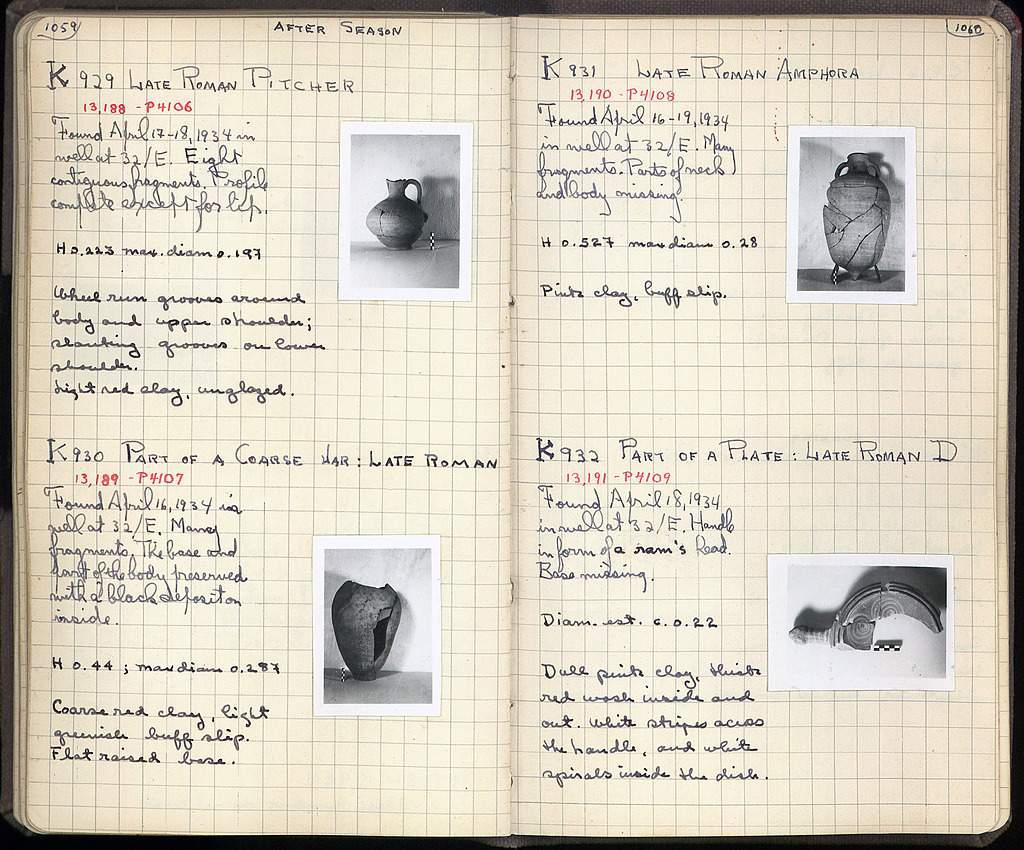 1059
AFTER SEASON
K 929 LATE ROMAN PITCHER
13,188 - P4106
Found April 17-18, 1934 in
well at 32/E. Eight
contiguous fragments. Profile
complete except for lip.
H 0.223 max. diam 0.197
Wheel run grooves around
body and upper shoulder;
slanting grooves on lower
shoulder.
Light red clay, unglazed.
K 930 PART OF A COARSE JAR: LATE ROMAN
13,189 - P4107
Found April 16, 1934 in
well at 32/E. Many
fragments. The base and
part of the body preserved
with a black deposit on
inside.
H 0.44; max diam 0.287
Coarse red clay, light
greenish buff slip.
Flat raised base.
1060
K 931 LATE ROMAN AMPHORA
13,190 - P4108
Found April 16-19, 1934
in well at 32/E. Many
fragments. Parts of neck
and body missing.
H 0.527 max diam 0.28
Pink clay, buff slip.
K 932 PART OF A PLATE: LATE ROMAN D
13,191 - P4109
Found April 18, 1934
in well at 32/E. Handle
in form of a ram's head.
Base missing.
Diam. est. c. 0.22
Dull pink clay, thick
red wash inside and
out. White stripes across
the handle, and white
spirals inside the dish.